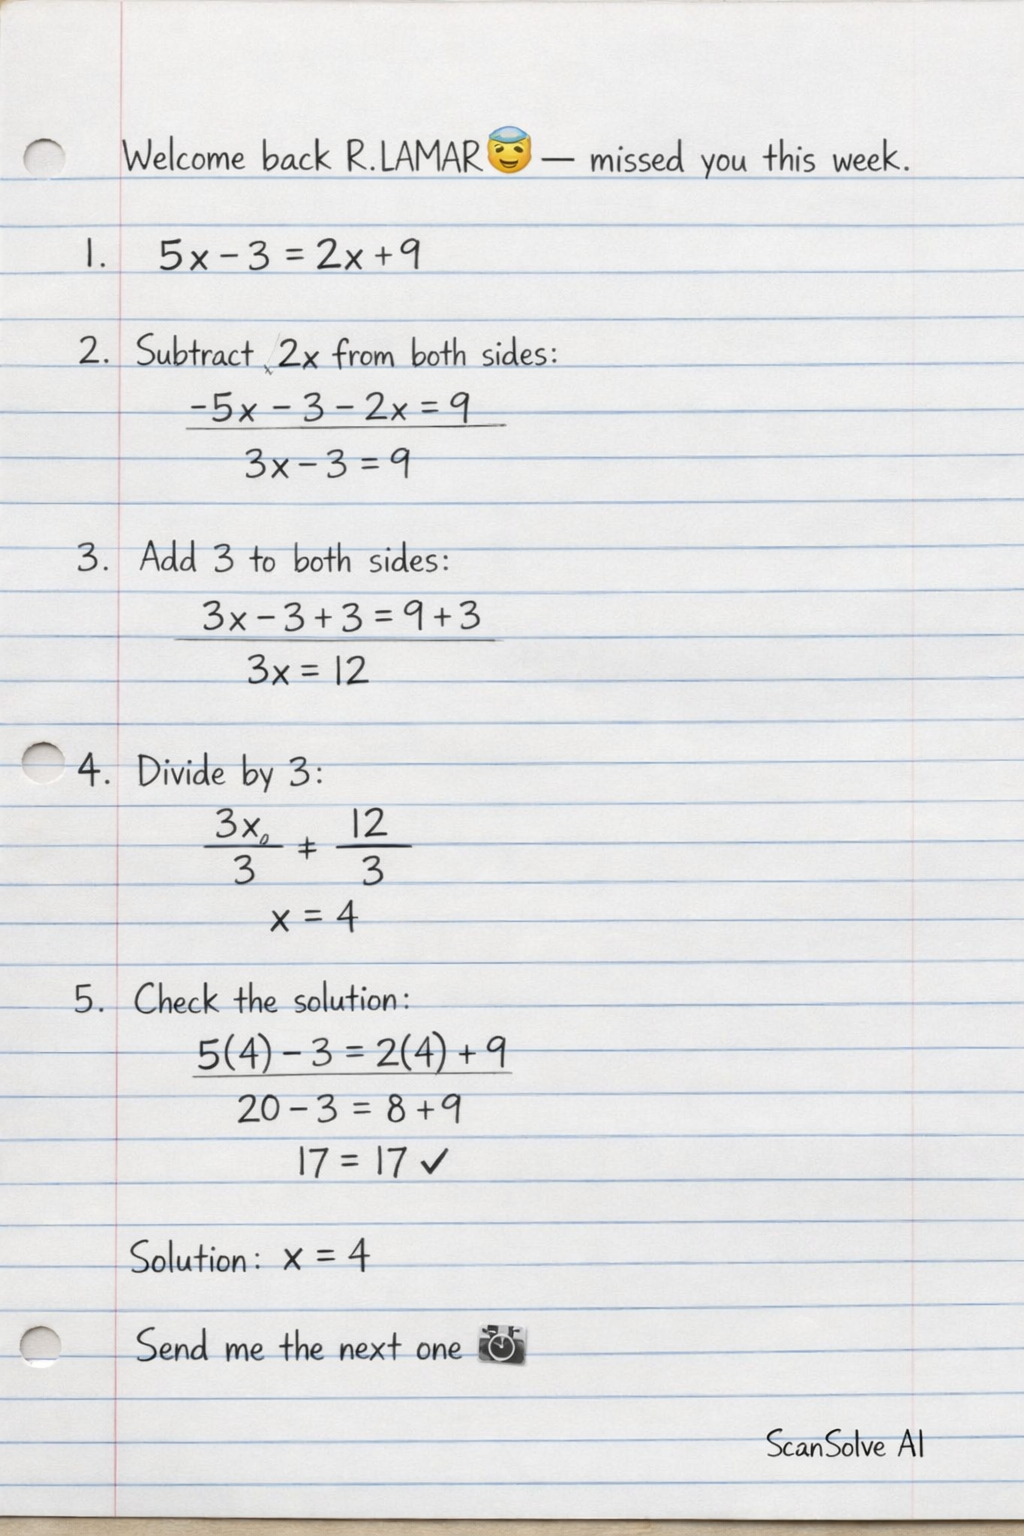 Welcome back R.LAMAR😇 — missed you this week.
1. 5x - 3 = 2x + 9
2. Subtract 2x from both sides:
-5x - 3 - 2x = 9
3x - 3 = 9
3. Add 3 to both sides:
3x - 3 + 3 = 9 + 3
3x = 12
4. Divide by 3:
3x 12
— ≠ —
3 3
x = 4
5. Check the solution:
5(4) - 3 = 2(4) + 9
20 - 3 = 8 + 9
17 = 17 ✓
Solution: x = 4
Send me the next one 📷
ScanSolve AI